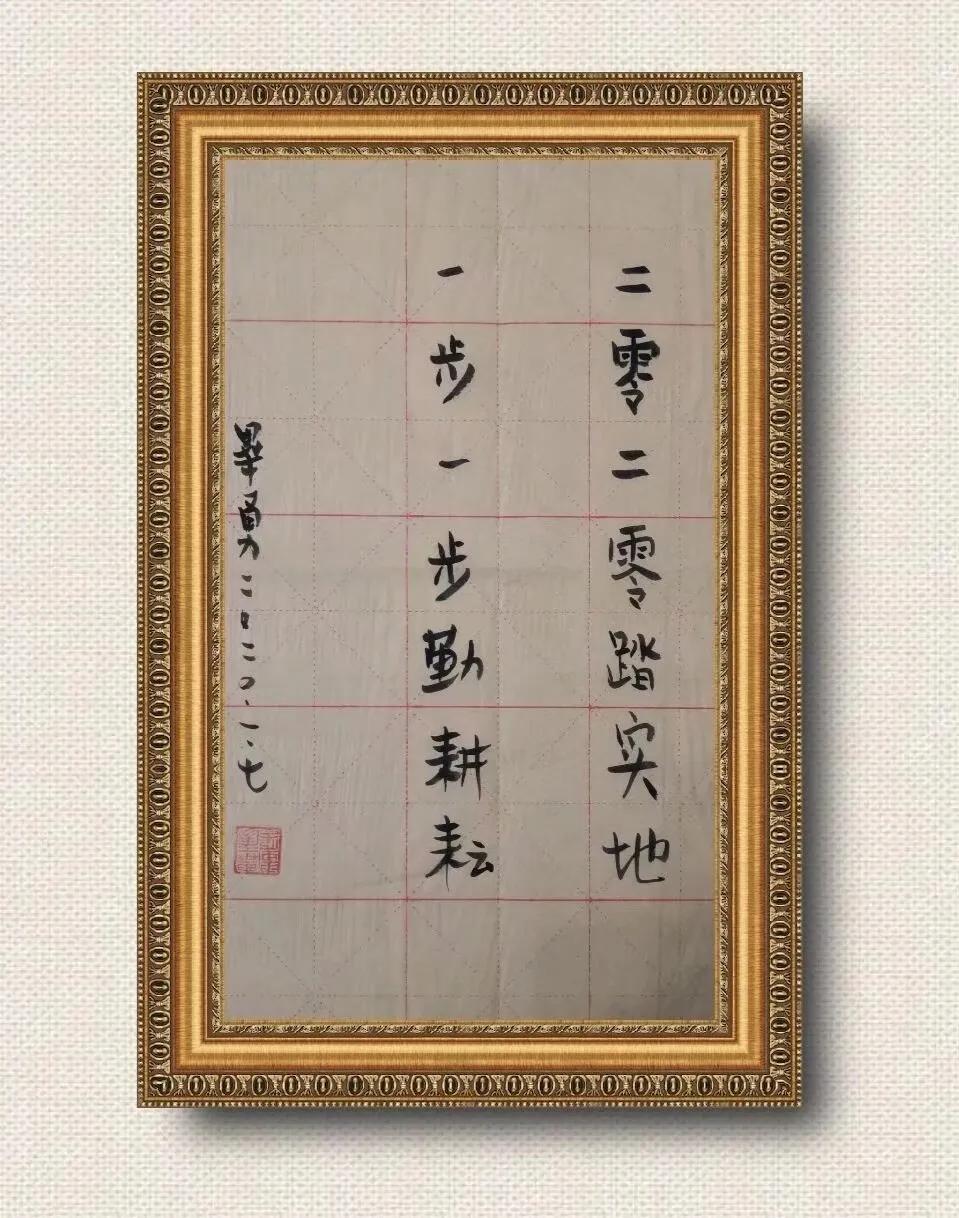 二零二零踏实地
一步一步勤耕耘
畢勇二〇二〇.一.七